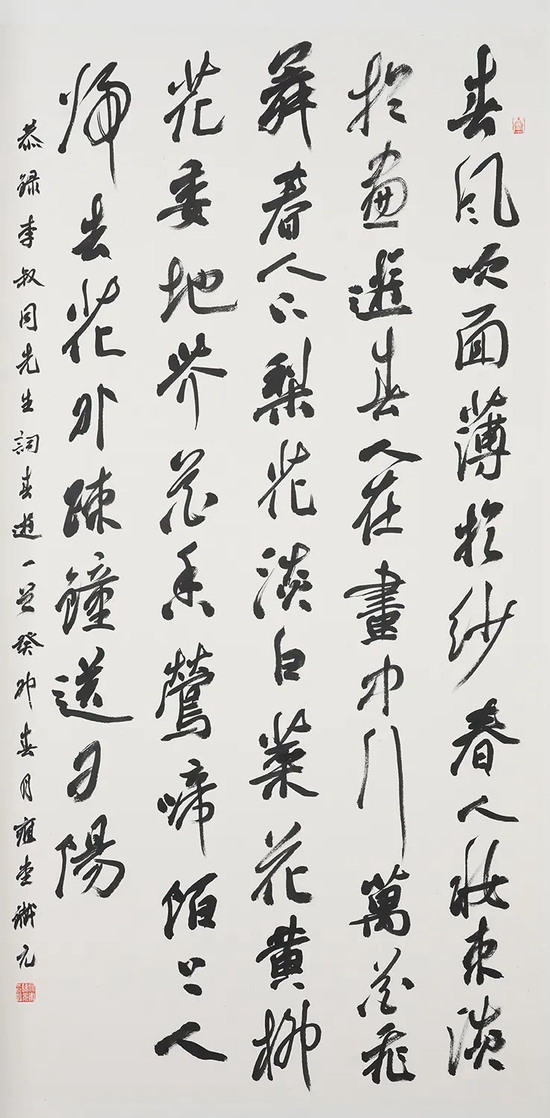 春風吹面薄於紗春人妝束淡
於畫遊春人在畫中行萬花飛
舞春人下梨花淡白菜花黃柳
花委地芥花香鶯啼陌上人
歸去花外疎鐘送夕陽
恭錄李叔同先生詞春遊一首癸卯春月